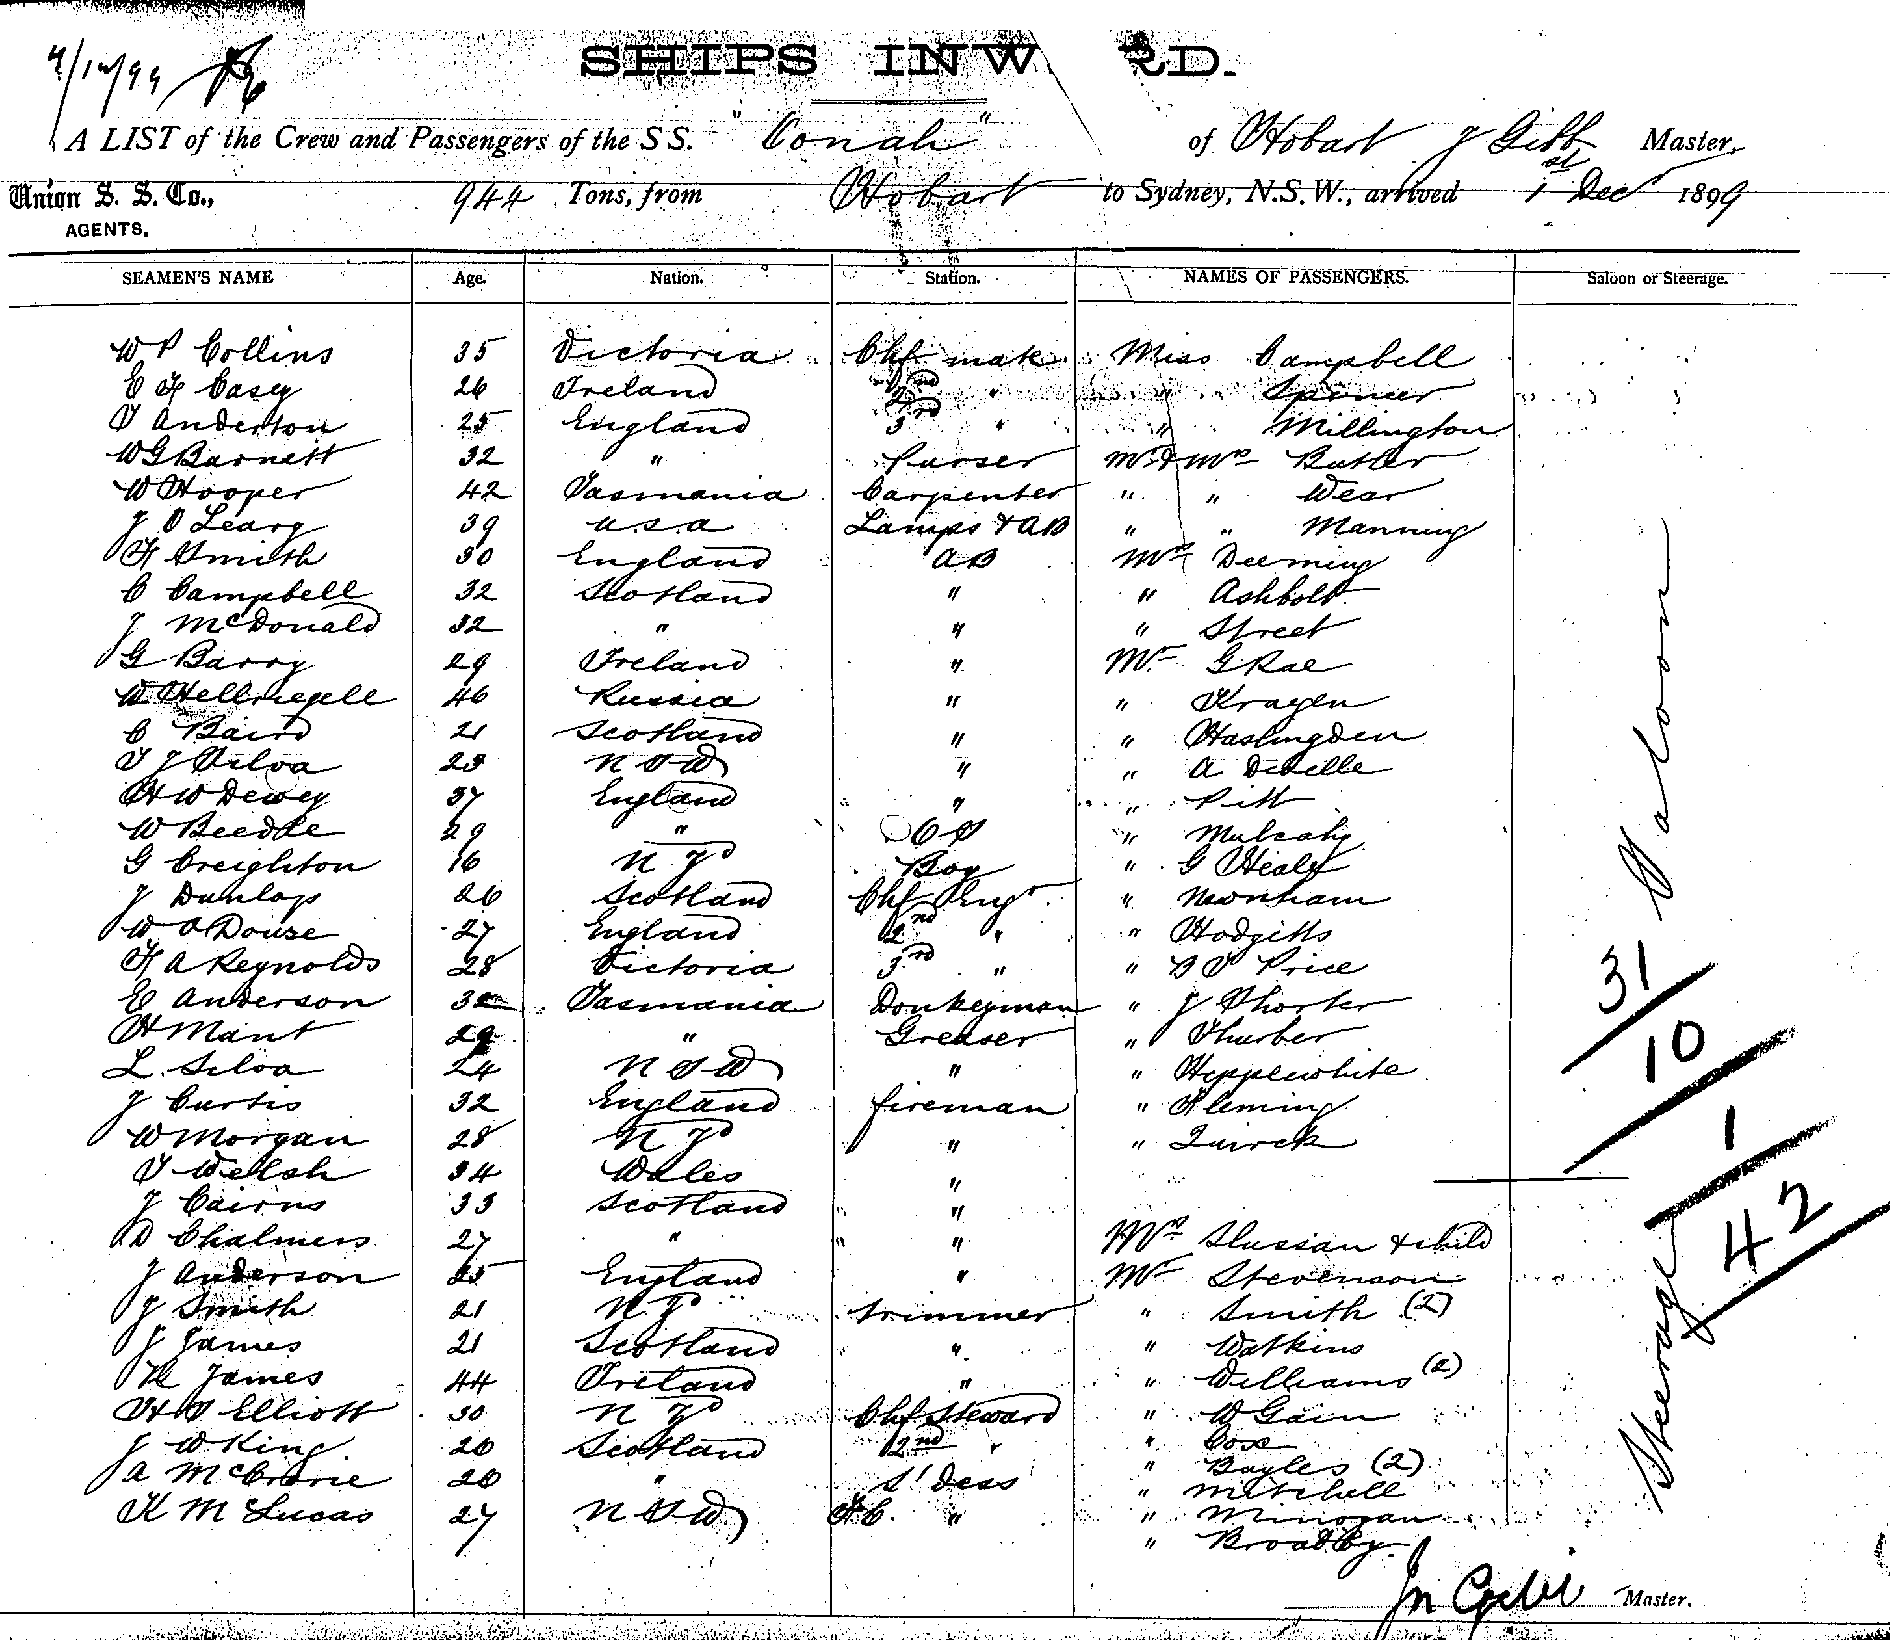 4/12/99
SHIPS INW RD.
A LIST of the Crew and Passengers of the S S. "Oonah" of Hobart J Gibb Master,
Union S. S. Co., 944 Tons, from Hobart to Sydney, N.S.W., arrived 1st Dec 1899
AGENTS.
SEAMEN'S NAME Age. Nation. Station. NAMES OF PASSENGERS. Saloon or Steerage.
W P Collins 35 Victoria Chf mate Miss Campbell
E F Casey 26 Ireland 2nd " " Spencer
T Anderton 25 England 3rd " " Millington
W G Barnett 32 " Purser Mr & Mrs Butler
W Hooper 42 Tasmania Carpenter " " Wear
J O Leary 39 U.S.A Lamps & AB " " Manning
F Smith 30 England AB Mrs Deeming
C Campbell 32 Scotland " " Ashbolt
J McDonald 32 " " " Street
G Barry 29 Ireland " Mr G Rae
W 46 Russia " " Kragen
C Baird 21 Scotland " " Haslingden
T J Silva 23 N S W " " A Deville
H W Dewey 37 England " " Pitt
W Beedle 29 " O S " Mulcahy
G Creighton 16 N Zd Boy " G Healy
J Dunlop 26 Scotland Chf Engr " Newnham
W A Douse 27 England 2nd " " Hodgitts
F A Reynolds 28 Victoria 3rd " " Price
E Anderson 32 Tasmania Donkeyman " J Shorter
H Mant 29 " Greaser " Thurber
L. Silva 24 N S W " " Hepplewhite
J Curtis 32 England fireman " Fleming
W Morgan 28 N Zd " " Quirck
T Welsh 34 Wales "
J Cairns 33 Scotland "
D Chalmers 27 " " Mrs Slussan & child
J Anderson 25 England " Mr Stevenson
J Smith 21 N Zd trimmer " Smith (2)
J James 21 Scotland " " Watkins
H James 44 Ireland " " Williams (2)
H S Elliott 30 N Zd Chf Steward " W Gain
J W King 26 Scotland 2nd " " Cox
A McCrorie 26 " S'dess " Bayles (2)
K M Lucas 27 N S W F.C. " " Mitchell
" Minogan
" Broadby
31 Saloon
10
1
42
Steerage
Jn Gibb Master.